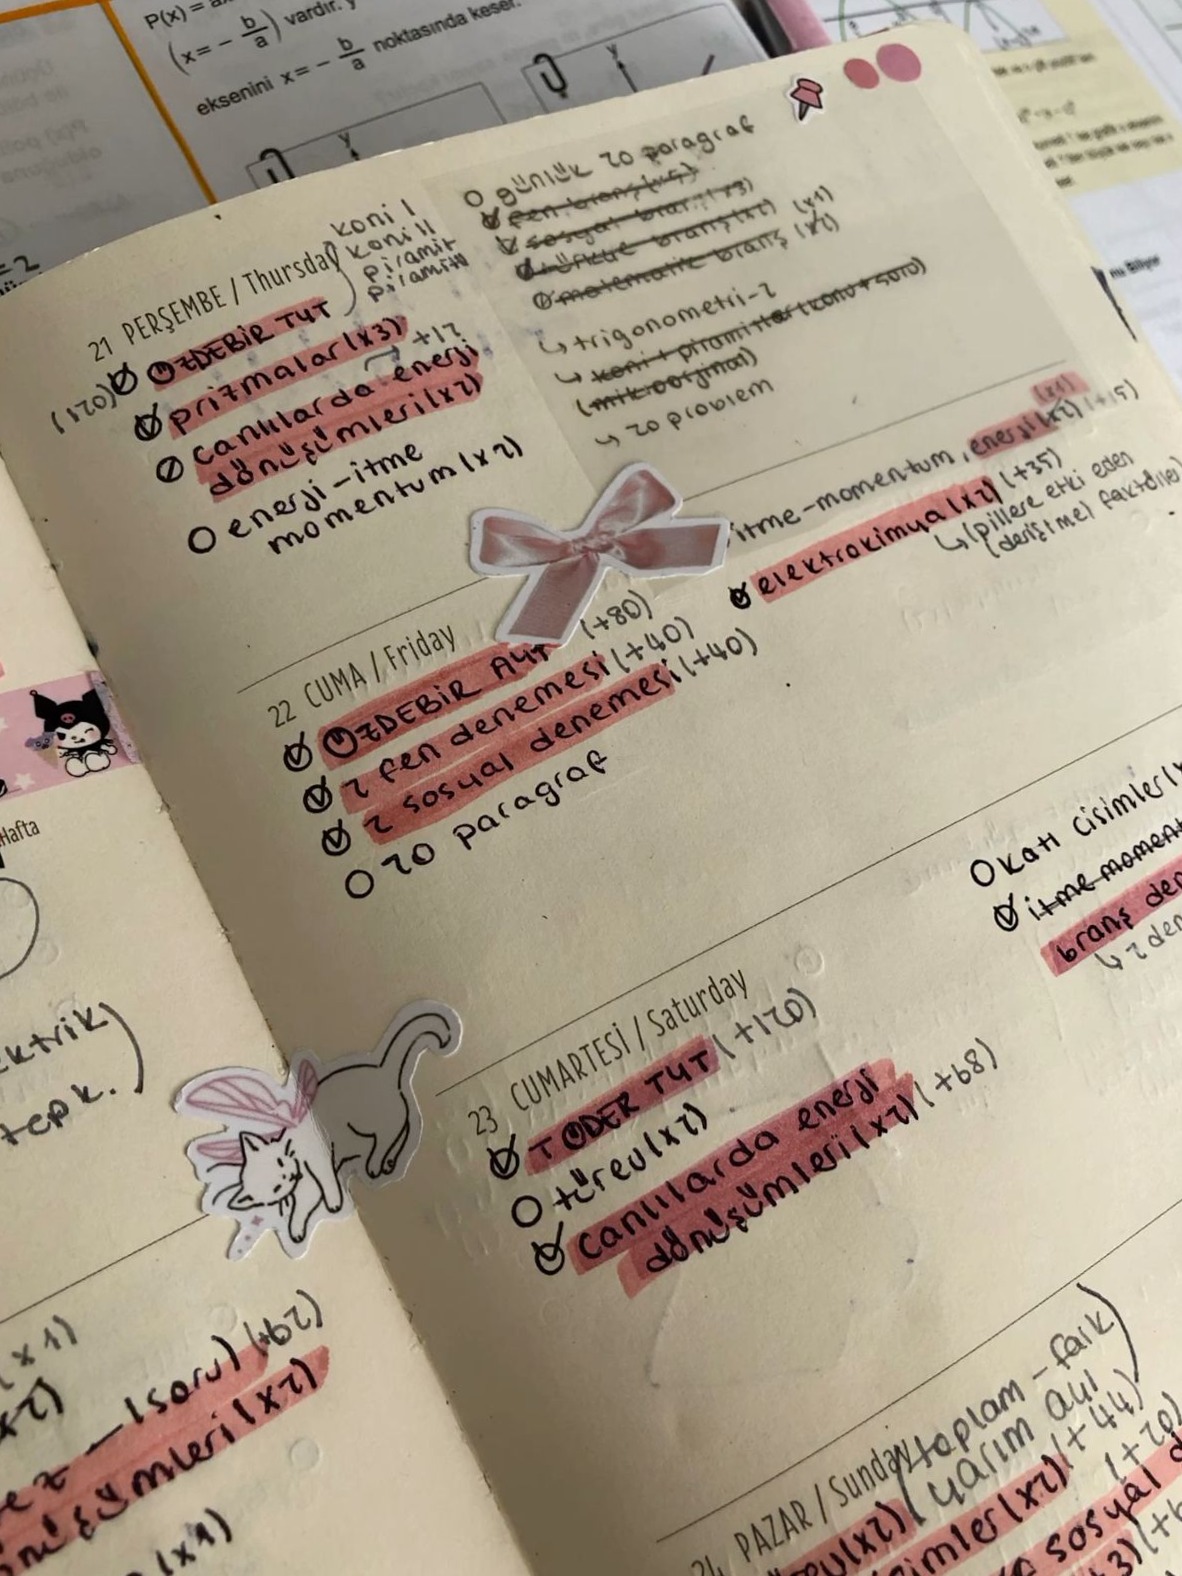 vardır.
(x = - b/a)
eksenini x = - b/a noktasında keser.
y
y
= 2
nu Biliyor
günlük 20 paragraf
fen branş (x5)
sosyal branş (x3)
türkçe branş (x2) (x1)
matematik branş (x2)
↳ trigonometri-2
↳ koni + piramitler (konu + soru)
(mikroorjinal)
↳ 20 problem
21 PERŞEMBE / Thursday
koni I
koni II
piramit
(120) ÖZDEBİR TYT
prizmalar (x3)
→ +12
canlılarda enerji
dönüşümleri (x2)
enerji-itme
momentum (x2)
itme-momentum, enerji (x2) (+15)
(x1)
elektrokimya (x2) (+35)
↳ (pillere etki eden
(derişime) faktörler)
22 CUMA / Friday
ÖZDEBİR AYT (+80)
2 fen denemesi (+40)
2 sosyal denemesi (+40)
20 paragraf
Hafta
katı cisimler (x
itme moment
branş den
↳ 2 den
23 CUMARTESİ / Saturday
TÖDER TYT (+120)
türev (x2)
canlılarda enerji
dönüşümleri (x2) (+68)
ktrik)
tepk.)
(x1)
x2)
(soru) (+62)
ümleri (x2)
(x1)
24 PAZAR / Sunday
(toplam - fark)
yarım açı
(x2)
simler (x2) (+44)
(+20)
sosyal d